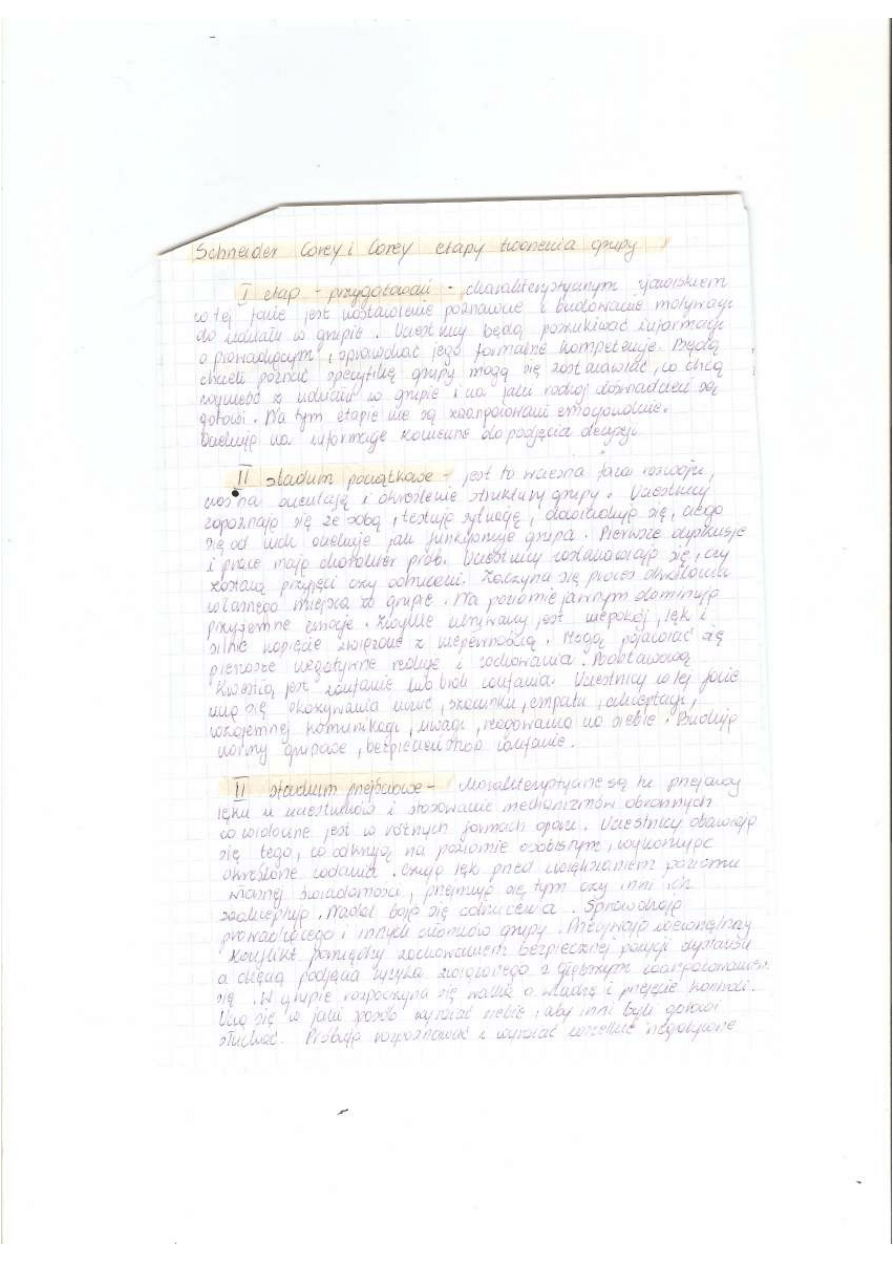 Schneider Corey i Corey etapy tworzenia grupy
I etap - przygotowań - charakterystycznym zjawiskiem
w tej fazie jest nastawienie poznawcze i budowanie motywacji
do udziału w grupie. Uczestnicy będą poszukiwać informacji
o prowadzącym, sprawdzać jego formalne kompetencje. Będą
chcieli poznać specyfikę grupy mogą się zastanawiać, co chcą
wynieść z udziału w grupie i na jaki rodzaj doświadczeń są
gotowi. Na tym etapie nie są zaangażowani emocjonalnie.
Oczekują na informacje konieczne do podjęcia decyzji
II stadium początkowe - jest to wczesna faza rozwoju,
czas na orientację i określenie struktury grupy. Uczestnicy
zapoznają się ze sobą, testują sytuację, dowiadują się, czego
się od nich oczekuje jak funkcjonuje grupa. Pierwsze dyskusje
i prace mają charakter prób. Uczestnicy zastanawiają się, czy
zostaną przyjęci czy odrzuceni. Zaczyna się proces określania
własnego miejsca w grupie. Na poziomie jawnym dominują
przyjemne emocje. Zwykle ukrywany jest niepokój, lęk i
silne napięcie związane z niepewnością. Mogą pojawiać się
pierwsze negatywne reakcje i zachowania. Podstawową
kwestią jest zaufanie lub brak zaufania. Uczestnicy w tej fazie
uczą się okazywania uczuć, szacunku, empatii, akceptacji,
wzajemnej komunikacji, uwagi, reagowania na siebie. Budują
normy grupowe, bezpieczeństwo zaufanie.
II stadium przejściowe - charakterystyczne są tu przejawy
lęku u uczestników i stosowanie mechanizmów obronnych
co widoczne jest w różnych formach oporu. Uczestnicy obawiają
się tego, co odkryją na poziomie osobistym, wykonując
określone zadania. Czują lęk przed zwiększaniem poziomu
własnej świadomości, przejmują się tym czy inni ich
zaakceptują. Nadal boją się odrzucenia. Sprawdzają
prowadzącego i innych członków grupy. Przeżywają wewnętrzny
konflikt pomiędzy zachowaniem bezpiecznej pozycji dystansu
a chęcią podjęcia ryzyka związanego z głębszym zaangażowaniem
się. W grupie rozpoczyna się walka o władzę i przejęcie kontroli.
Uczą się w jaki sposób wyrażać siebie, aby inni byli gotowi
słuchać. Próbują rozpoznawać i wyrażać wszelkie negatywne